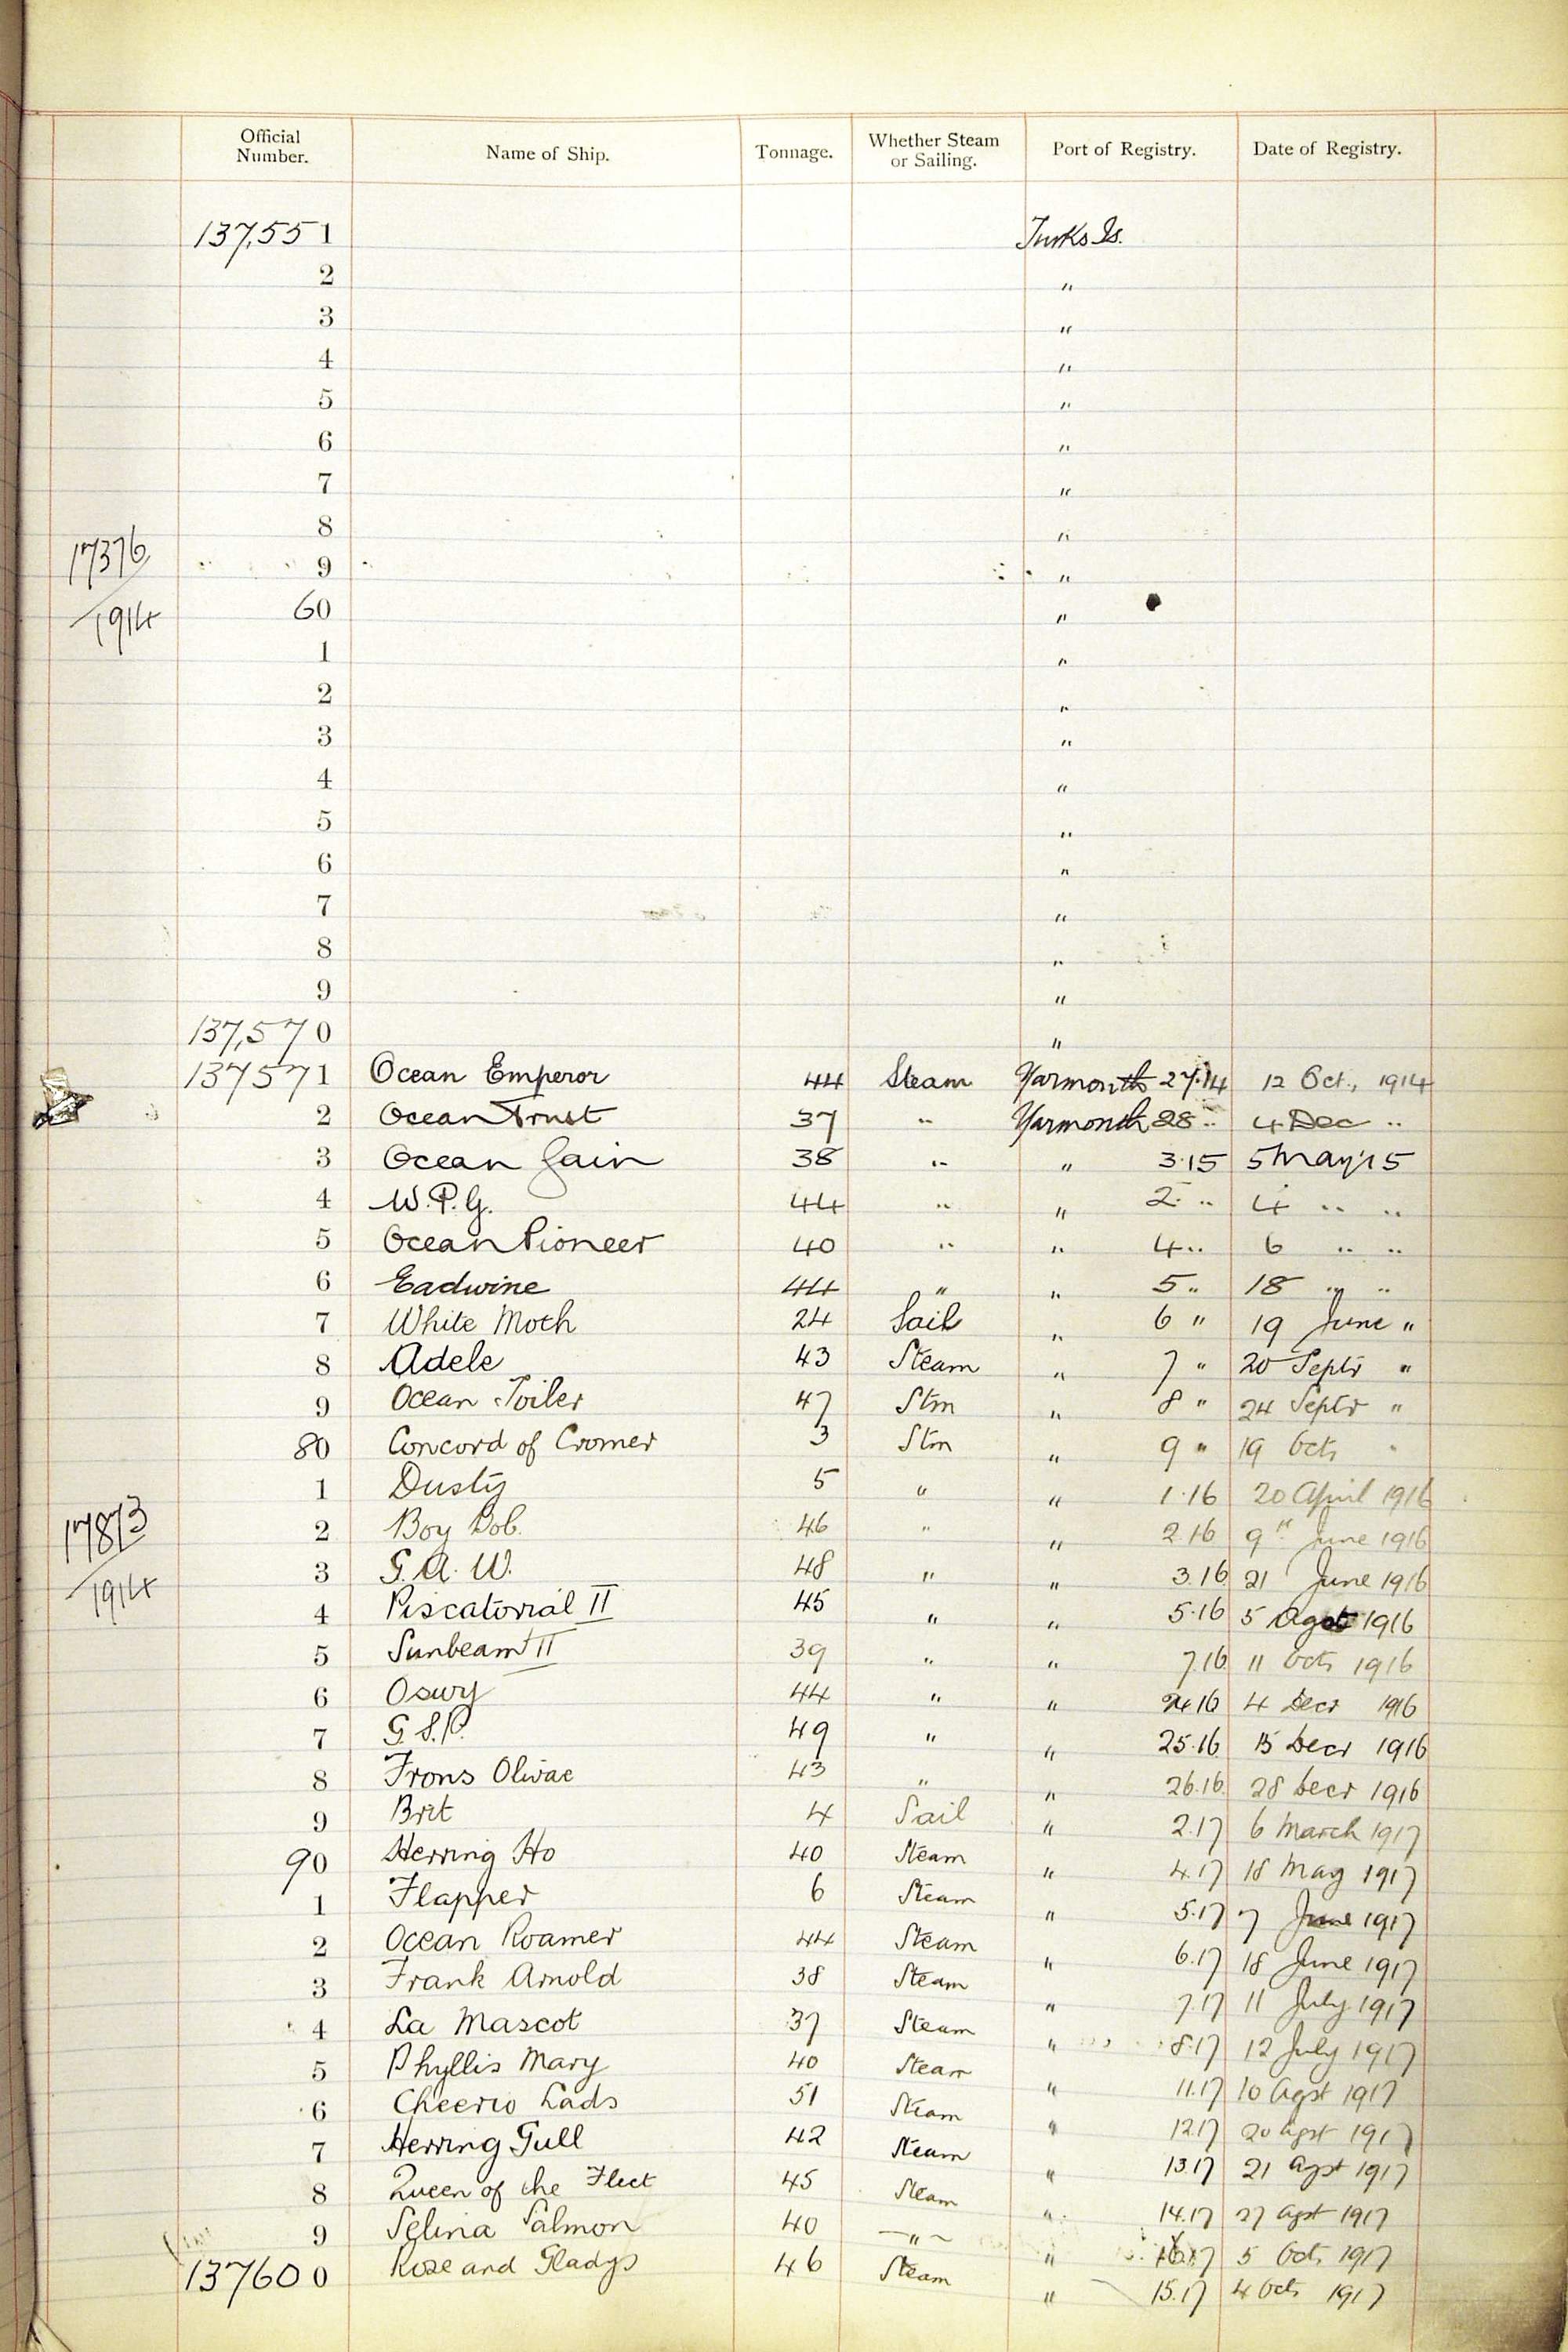 Official Number. Name of Ship. Tonnage. Whether Steam or Sailing. Port of Registry. Date of Registry.
137,551 Turks Is.
2 "
3 "
4 "
5 "
6 "
7 "
8 "
17376
9 "
60 "
1914
1 "
2 "
3 "
4 "
5 "
6 "
7 "
8 "
9 "
137,570 "
137571 Ocean Emperor 44 Steam Yarmouth 27.14 12 Oct., 1914
2 Ocean Trust 37 " Yarmouth 28 " 4 Dec "
3 Ocean Gain 38 " " 3.15 5 May '15
4 W.P.G. 44 " " 2. " 4 " "
5 Ocean Pioneer 40 " " 4 " 6 " "
6 Eadwine 44 " " 5 " 18 " "
7 White Moth 24 Sail " 6 " 19 June "
8 Adele 43 Steam " 7 " 20 Septr "
9 Ocean Toiler 47 Stm " 8 " 24 Septr "
80 Concord of Cromer 3 Stm " 9 " 19 Octr "
1 Dusty 5 " " 1.16 20 April 1916
17873
2 Boy Bob. 46 " " 2.16 9th June 1916
3 G.A.W. 48 " " 3.16 21 June 1916
1914
4 Piscatorial II 45 " " 5.16 5 Agst 1916
5 Sunbeam II 39 " " 7.16 11 Octr 1916
6 Oswy 44 " " 24.16 4 Decr 1916
7 G.S.P. 49 " " 25.16 15 Decr 1916
8 Frons Olivae 43 " " 26.16 28 Decr 1916
9 Brit 4 Sail " 2.17 6 March 1917
90 Herring Ho 40 Steam " 4.17 18 May 1917
1 Flapper 6 Steam " 5.17 7 June 1917
2 Ocean Roamer 44 Steam " 6.17 18 June 1917
3 Frank Arnold 38 Steam " 7.17 11 July 1917
4 La Mascot 37 Steam " 8.17 12 July 1917
5 Phyllis Mary 40 Steam " 11.17 10 Agst 1917
6 Cheerio Lads 51 Steam " 12.17 20 Agst 1917
7 Herring Gull 42 Steam " 13.17 21 Agst 1917
8 Queen of the Fleet 45 Steam " 14.17 27 Agst 1917
9 Selina Salmon 40 " " 5 Octr 1917
137600 Rose and Gladys 46 Steam " 15.17 4 Octr 1917